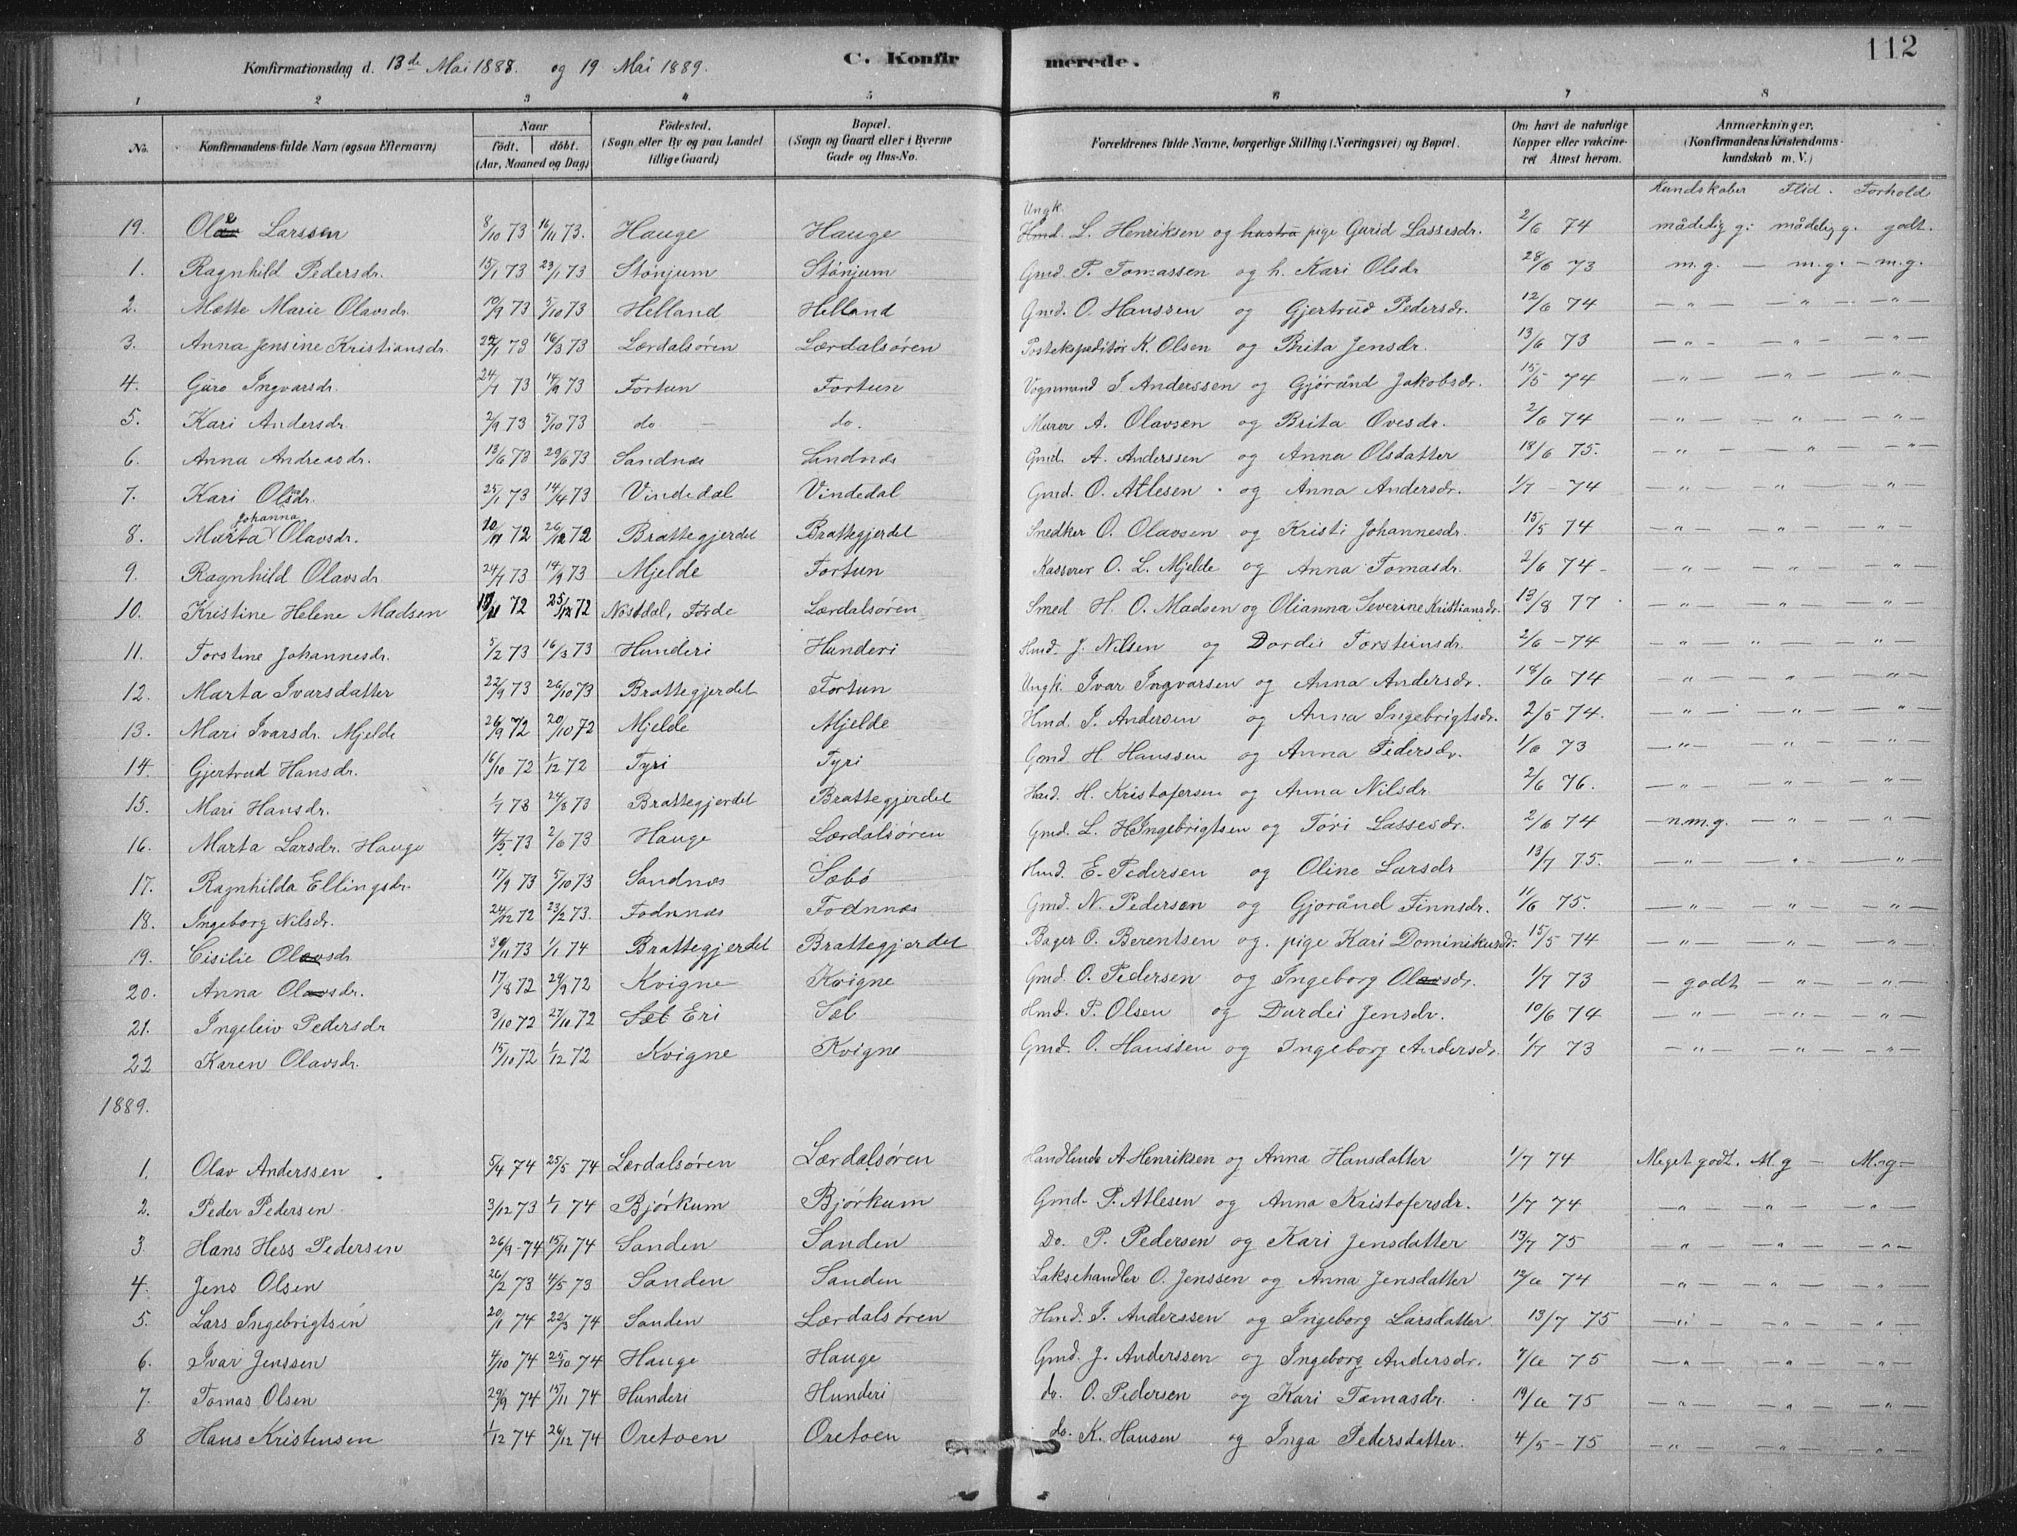 112
Konfirmationsdag d. 13de Mai 1888. og 19 Mai 1889. C. Konfir merede.
1 2 3 4 5 6 7 8
No. Konfirmandens fulde Navn (ogsaa Efternavn) Naar født. døbt. (Aar, Maaned og Dag) Fødested. (Sogn eller By og paa Landet tillige Gaard) Bopæl. (Sogn og Gaard eller i Byerne Gade og Hus-No. Forældrenes fulde Navne, borgerlige Stilling (Næringsvei) og Bopæl. Om havt de naturlige Kopper eller vakcineret Attest herom. Anmærkninger. (Konfirmandens Kristendomskundskab m. V.)
Kundskaber Flid. Forhold
19. Ole Larssen 8/10 73 16/11 73. Hauge Hauge Ungk. L. Henriksen og hustru pige Gurid Lassesdr. 2/6 74 mådelig g. mådelig g. godt.
1. Ragnhild Pedersdr. 15/1 73 23/1 73 Stønjum Stønjum Gmd. P. Tomassen og h. Kari Olsdr 28/6 73 m.g. — m.g. — m.g.
2. Mætte Marie Olavsdr. 10/9 73 5/10 73 Helland Helland Gmd. O. Hanssen og Gjertrud Pedersdr. 12/6 74 — " — " — " —
3. Anna Jensine Kristiansdr. 22/1 73 16/3 73 Lærdalsören Lærdalsören Postekspeditør K. Olsen og Brita Jensdr. 13/6 73 — " — " — " —
4. Guro Ingvarsdr. 24/7 73 14/9 73 Fortun Fortun Vognmand I. Anderssen og Gjöránd Jakobsdr. 15/5 74 — " — " — " —
5. Kari Andersdr. 2/9 73 5/10 73 do — do. Murer A. Olavsen og Brita Ovesdr. 2/6 74 — " — " — " —
6. Anna Andreasdr. 13/6 73 29/6 73 Sandnæs Sandnæs Gmd. A. Anderssen og Anna Olsdatter 18/6 75. — " — " — " —
7. Kari Olsdr. 25/1 73 14/4 73 Vindedal Vindedal Gmd. O. Atlesen og Anna Andersdr. 1/7 — 74 — " — " — " —
8. Marta Johanna Olavsdr. 10/11 72 26/12 72 Brattegjerdet Brattegjerdet Snedker O. Olavsen og Kristi Johannesdr. 15/5 74 — " — " — " —
9. Ragnhild Olavsdr 24/7 73 14/9 73 Mjelde Fortun Kasserer O. L. Mjelde og Anna Tomasdr. 2/6 74 — " — " — " —
10. Kristine Helene Madsen 72 25/12 72 Nostdal, Förde Lærdalsören Smed H. O. Madsen og Olianna Severine Kristiansdr. 13/8 77 — " — " — " —
11. Torstine Johannesdr. 5/2 73 16/3 73 Hunderi Hunderi Hmd. J. Nilsen og Dordei Torsteinsdr. 2/6 — 74 — " — " — " —
12. Marta Ivarsdatter 22/9 73 26/10 73 Brattegjerdet Fortun Ungk. Ivar Ingvarsen og Anna Andersdr. 18/6 74 — " — " — " —
13. Mari Ivarsdr. Mjelde 26/9 72 20/10 72 Mjelde Mjelde Hmd. I. Andersen og Anna Ingebrigtsdr. 2/5 74. — " — " — " —
14. Gjertrud Hansdr. 16/10 72 1/12 72 Tyri Tyri Gmd H. Hanssen og Anna Pedersdr. 1/6 73 — " — " — " —
15. Mari Hansdr. 1/7 73 24/8 73 Brattegjerdet Brattegjerdet Hmd. H. Kristofersen og Anna Nilsdr. 2/6 76. — " — " — " —
16. Marta Larsdr. Hauge 4/5 73 2/6 73 Hauge Lærdalsören Gmd. L. H. Ingebrigtsen og Töri Lassesdr. 2/6 74 — n.m.g. — " — " —
17. Ragnhilda Ellingsdr. 17/9 73 5/10 73 Sandnæs Sæbö Hmd. E. Pedersen og Oline Larsdr 13/7 75. — " — " — " —
18. Ingeborg Nilsdr. 24/12 72 23/2 73. Fodnnæs Fodnnæs Gmd. N. Pedersen og Gjöránd Finnsdr. 11/6 75. — " — " — " —
19. Cisilie Olsdr 30/11 73 1/1 74 Brattegjerdet Brattegjerdet Bager O. Berentsen og pige Kari Dominikusdr. 15/5 74 — " — " — " —
20. Anna Olsdr. 17/8 72 29/9 72 Kvigne Kvigne Gmd. O. Pedersen og Ingeborg Olsdr. 1/7 73 — godt — " — " —
21. Ingeleiv Pedersdr 3/10 72 27/10 72 Sæl Eri Sæl Hmd. P. Olsen og Durdei Jensdr. 10/6 74 — " — " — " —
22 Karen Olavsdr. 15/10 72 1/12 72 Kvigne Kvigne Gmd. O. Hanssen og Ingeborg Andersdr. 1/7 73 — " — " — " —
1889.
1. Olav Anderssen 5/4 74 25/5 74 Lærdalsören Lærdalsören A Henriksen og Anna Hansdatter 1/7 74 Meget godt. M.g — M.g —
2. Peder Pedersen 3/12 73 1/1 74 Bjørkum Bjørkum Gmd. P. Atlesen og Anna Kristofersdr. 1/7 74 — " — " — " —
3 Hans Hess Pedersen 26/9 - 74 15/11 74 Sanden Sanden Do. P. Pedersen og Kari Jensdatter 13/7 75 " — " — " —
4. Jens Olsen 26/2 73 4/5 73 Sanden Sanden Laksehandler O. Jenssen og Anna Jensdatter 12/6 74 — " — " — " —
5. Lars Ingebrigtsen 20/1 74 22/3 74 Sanden Lærdalsøren Hmd. I. Anderssen og Ingeborg Larsdatter. 13/7 75 — " — " — " —
6. Ivar Jenssen 4/10 74 25/10 74 Hauge Hauge Gmd. J. Anderssen og Ingeborg Andersdr. 7/6 75 — " — " — " —
7. Tomas Olsen 29/9 74 15/11 74 Hunderi Hunderi do. O. Pedersen og Kari Tomasdr. 19/6 75 — " — " — " —
8 Hans Kristensen 1/12 74 26/12 74 Oretoen Oretoen do. K. Hansen og Inga Pedersdatter. 4/5 - 75 " — " — " —